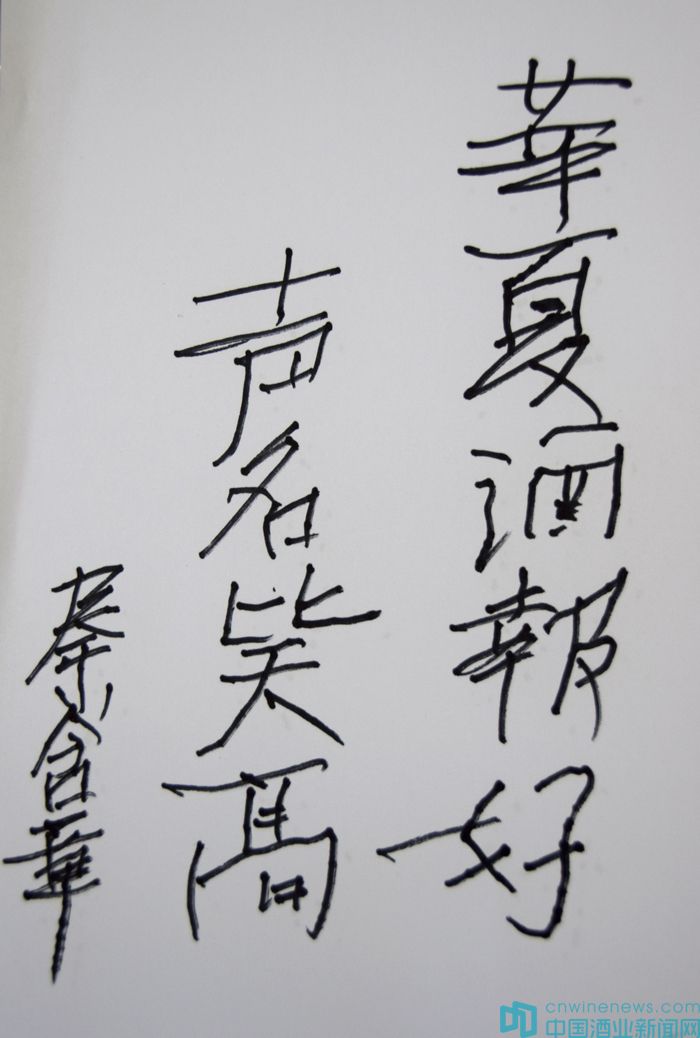 華夏酒報好
声名比天高
秦含章
cnwinenews.com
中国酒业新闻网